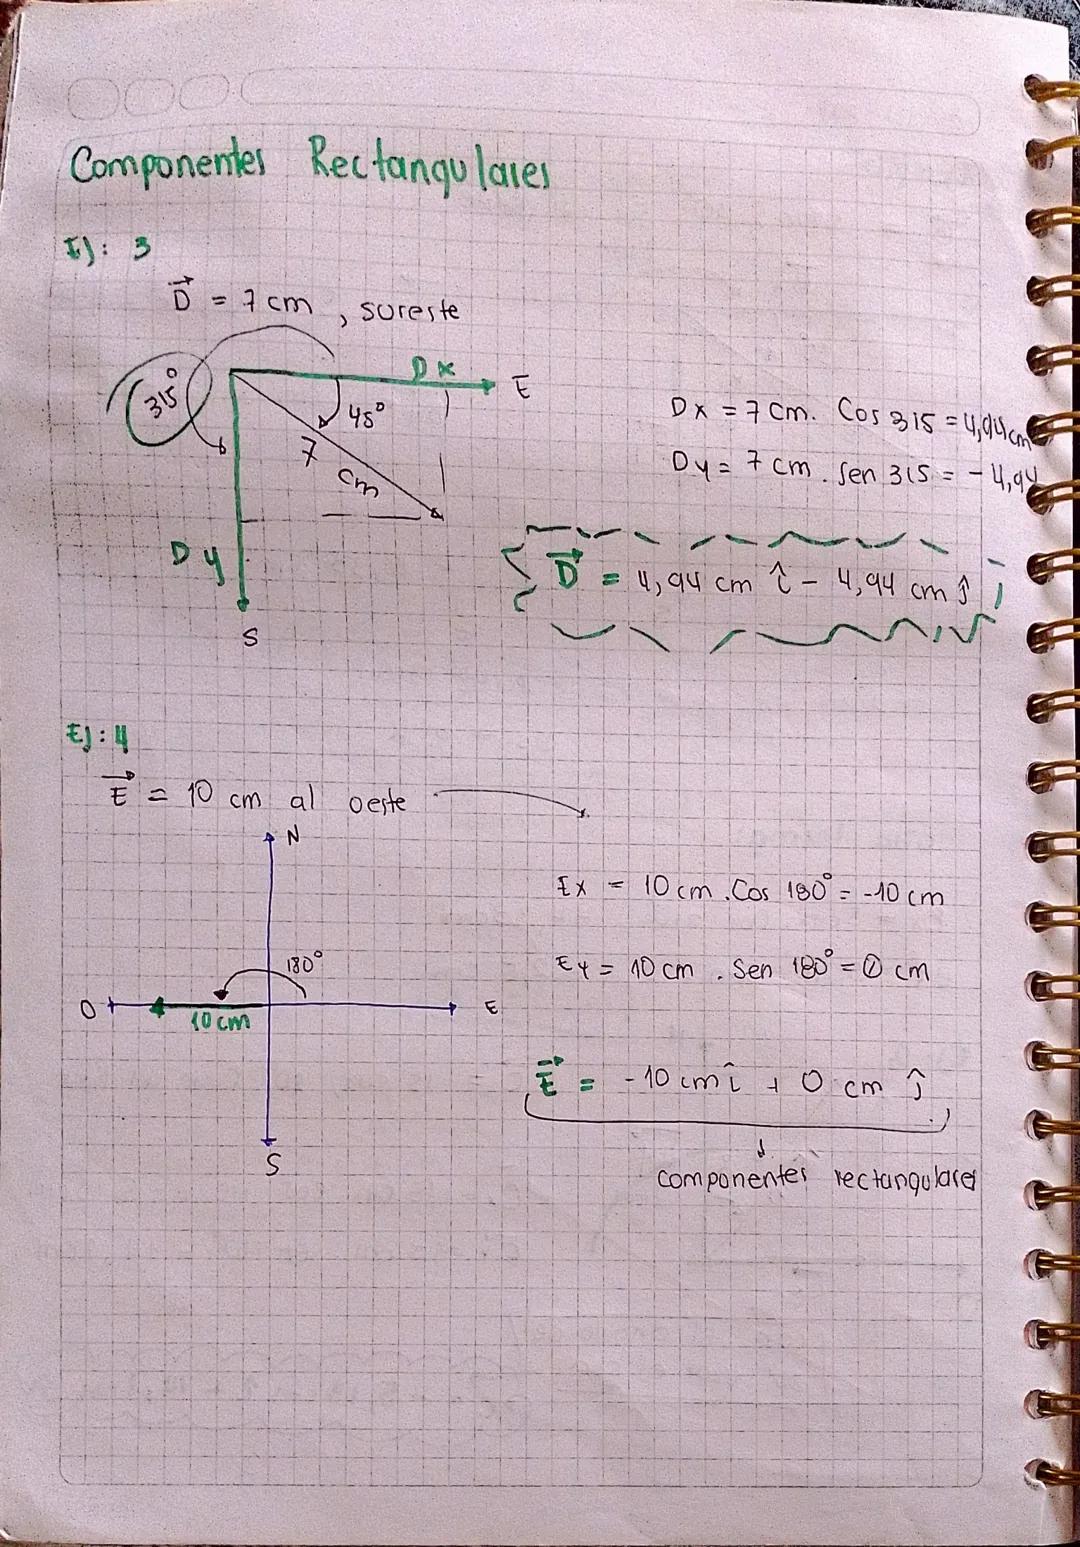 Componentes Rectangulares
Ej: 3
D = 7 cm, sureste
Dx
E
315°
45°
7 cm
Dx = 7 cm. Cos 315 = 4,94 cm
Dy = 7 cm. Sen 315 = - 4,94
Dy
D = 4,94 cm î - 4,94 cm ĵ
S
Ej: 4
E = 10 cm al oeste
N
Ex = 10 cm. Cos 180° = -10 cm
180°
Ey = 10 cm. Sen 180° = 0 cm
O
E
10 cm
E = -10 cm î + 0 cm ĵ
S
componentes rectangulares